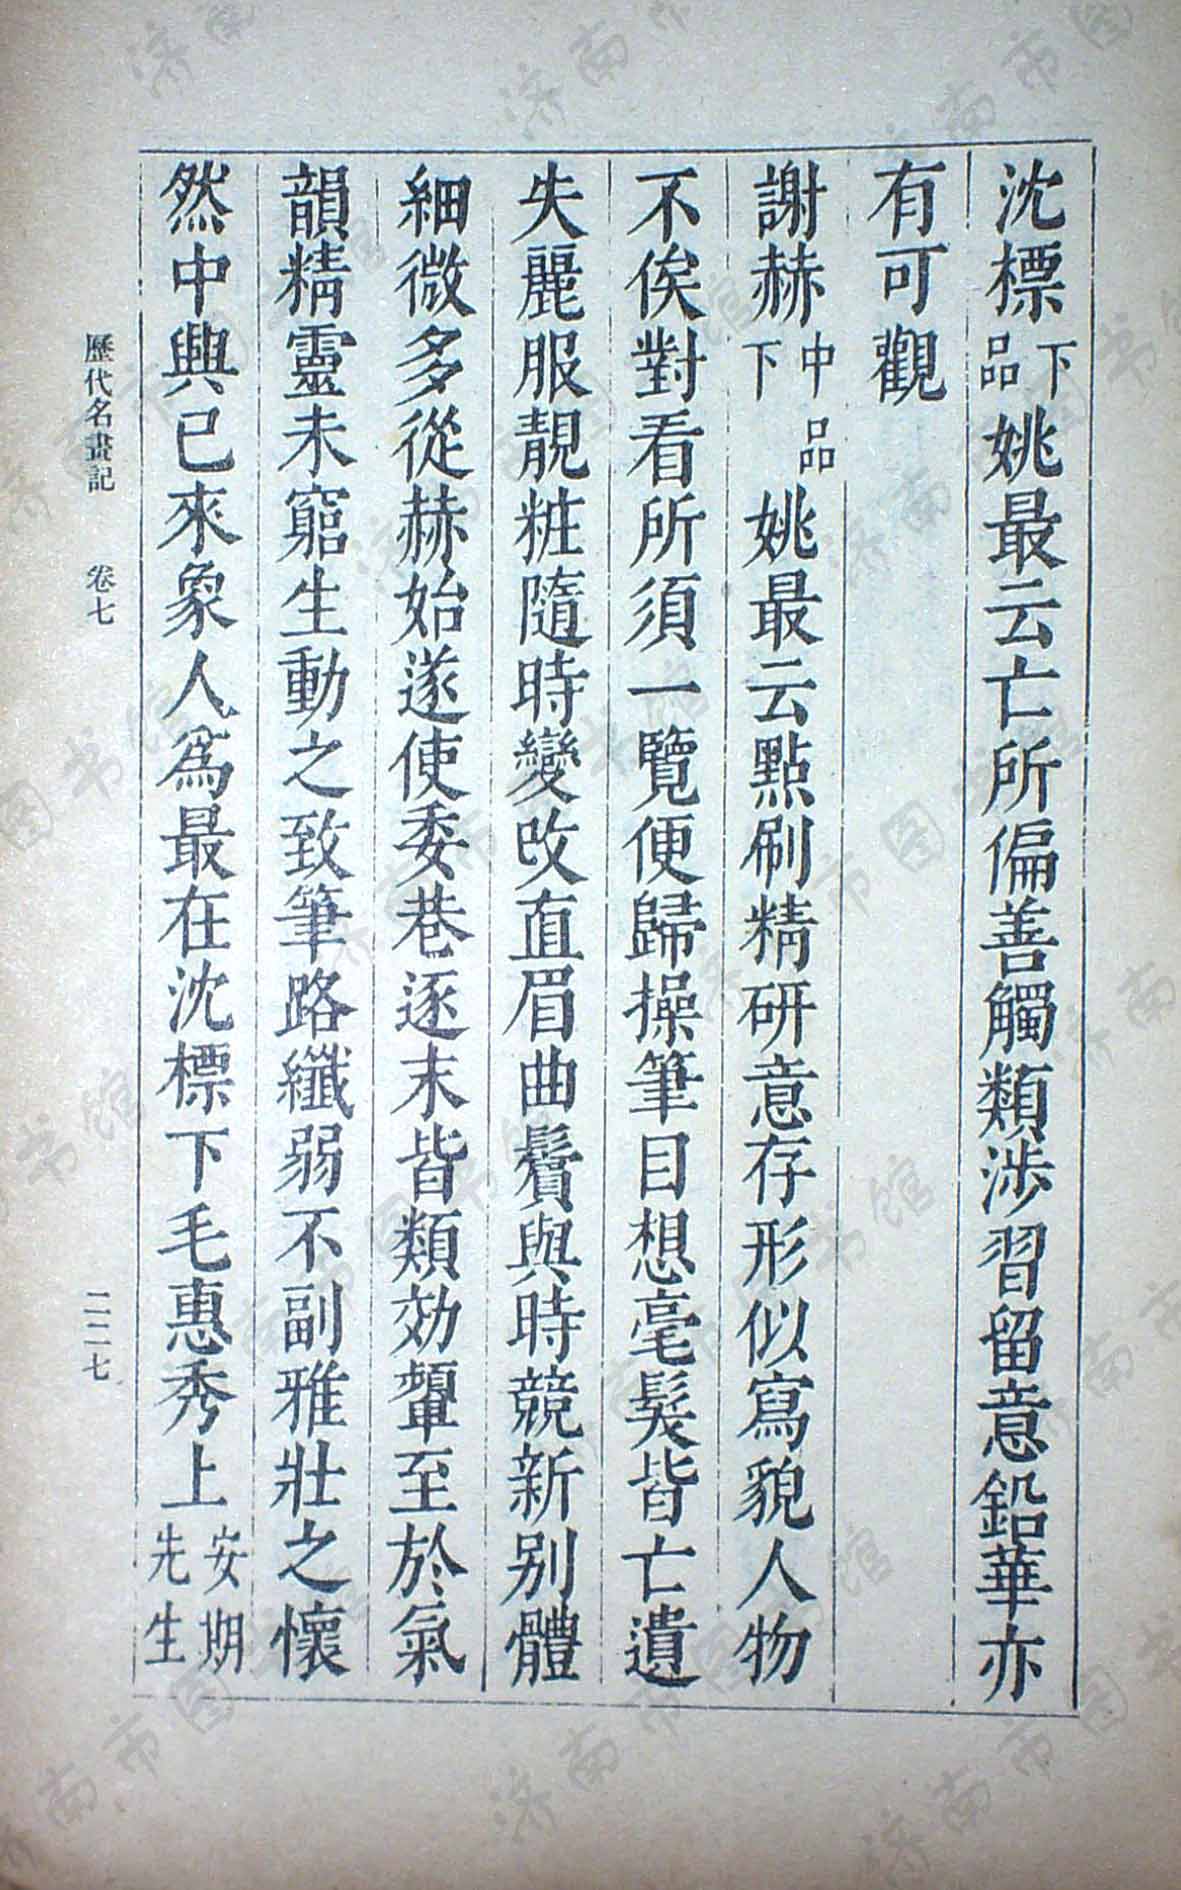 沈標下品姚最云亡所偏善觸類涉習留意鉛華亦
有可觀
謝赫中品下姚最云點刷精研意存形似寫貌人物
不俟對看所須一覽便歸操筆目想毫髮皆亡遺
失麗服靚粧隨時變改直眉曲鬢與時競新別體
細微多從赫始遂使委巷逐末皆類効顰至於氣
韻精靈未窮生動之致筆路纖弱不副雅壯之懷
然中興已來象人爲最在沈標下毛惠秀上安期先生
歷代名畫記 卷七 二二七
济南市图书馆